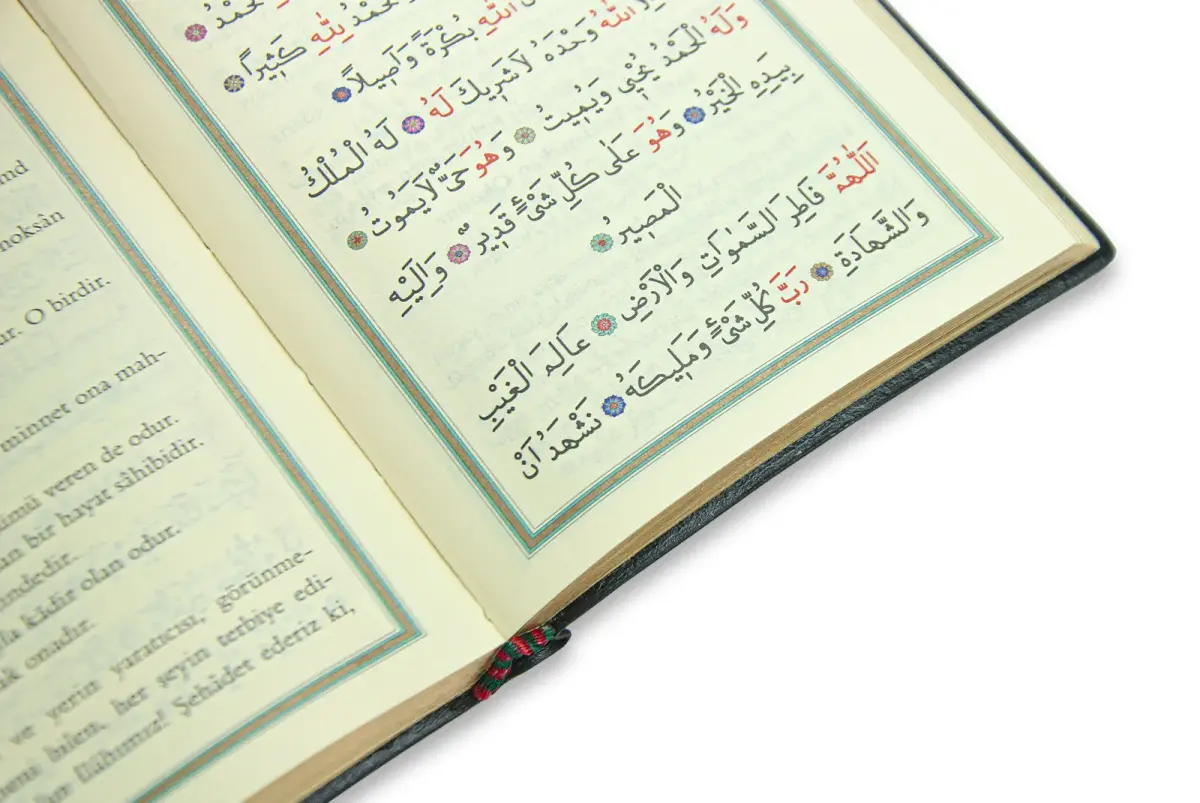 لِلّٰهِ كَثِيرًا
اللّٰهِ بُكْرَةً وَاَصِيلًا
اللّٰهُ وَحْدَهُ لَا شَرِيكَ لَهُ لَهُ الْمُلْكُ
وَلَهُ الْحَمْدُ يُحْيِي وَيُمِيتُ وَهُوَ حَيٌّ لَا يَمُوتُ
بِيَدِهِ الْخَيْرُ وَهُوَ عَلَى كُلِّ شَيْءٍ قَدِيرٌ وَاِلَيْهِ
الْمَصِيرُ
اَللّٰهُمَّ فَاطِرَ السَّمٰوَاتِ وَالْاَرْضِ عَالِمَ الْغَيْبِ
وَالشَّهَادَةِ رَبَّ كُلِّ شَيْءٍ وَمَلِيكَهُ نَشْهَدُ اَنْ
noksân
O birdir.
minnet ona mah-
veren de odur.
bir hayat sâhibidir.
kâdir olan odur.
onadır.
ve yerin yaratıcısı, görünme-
bilen, her şeyin terbiye edi-
İlâhımız! Şehâdet ederiz ki,